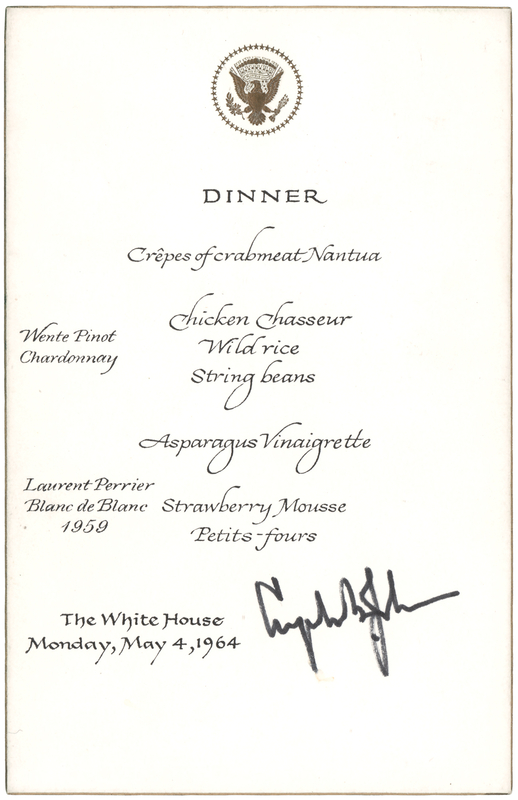 DINNER
Crêpes of crabmeat Nantua
Wente Pinot
Chardonnay
Chicken Chasseur
Wild rice
String beans
Asparagus Vinaigrette
Laurent Perrier
Blanc de Blanc
1959
Strawberry Mousse
Petits-fours
The White House
Monday, May 4, 1964